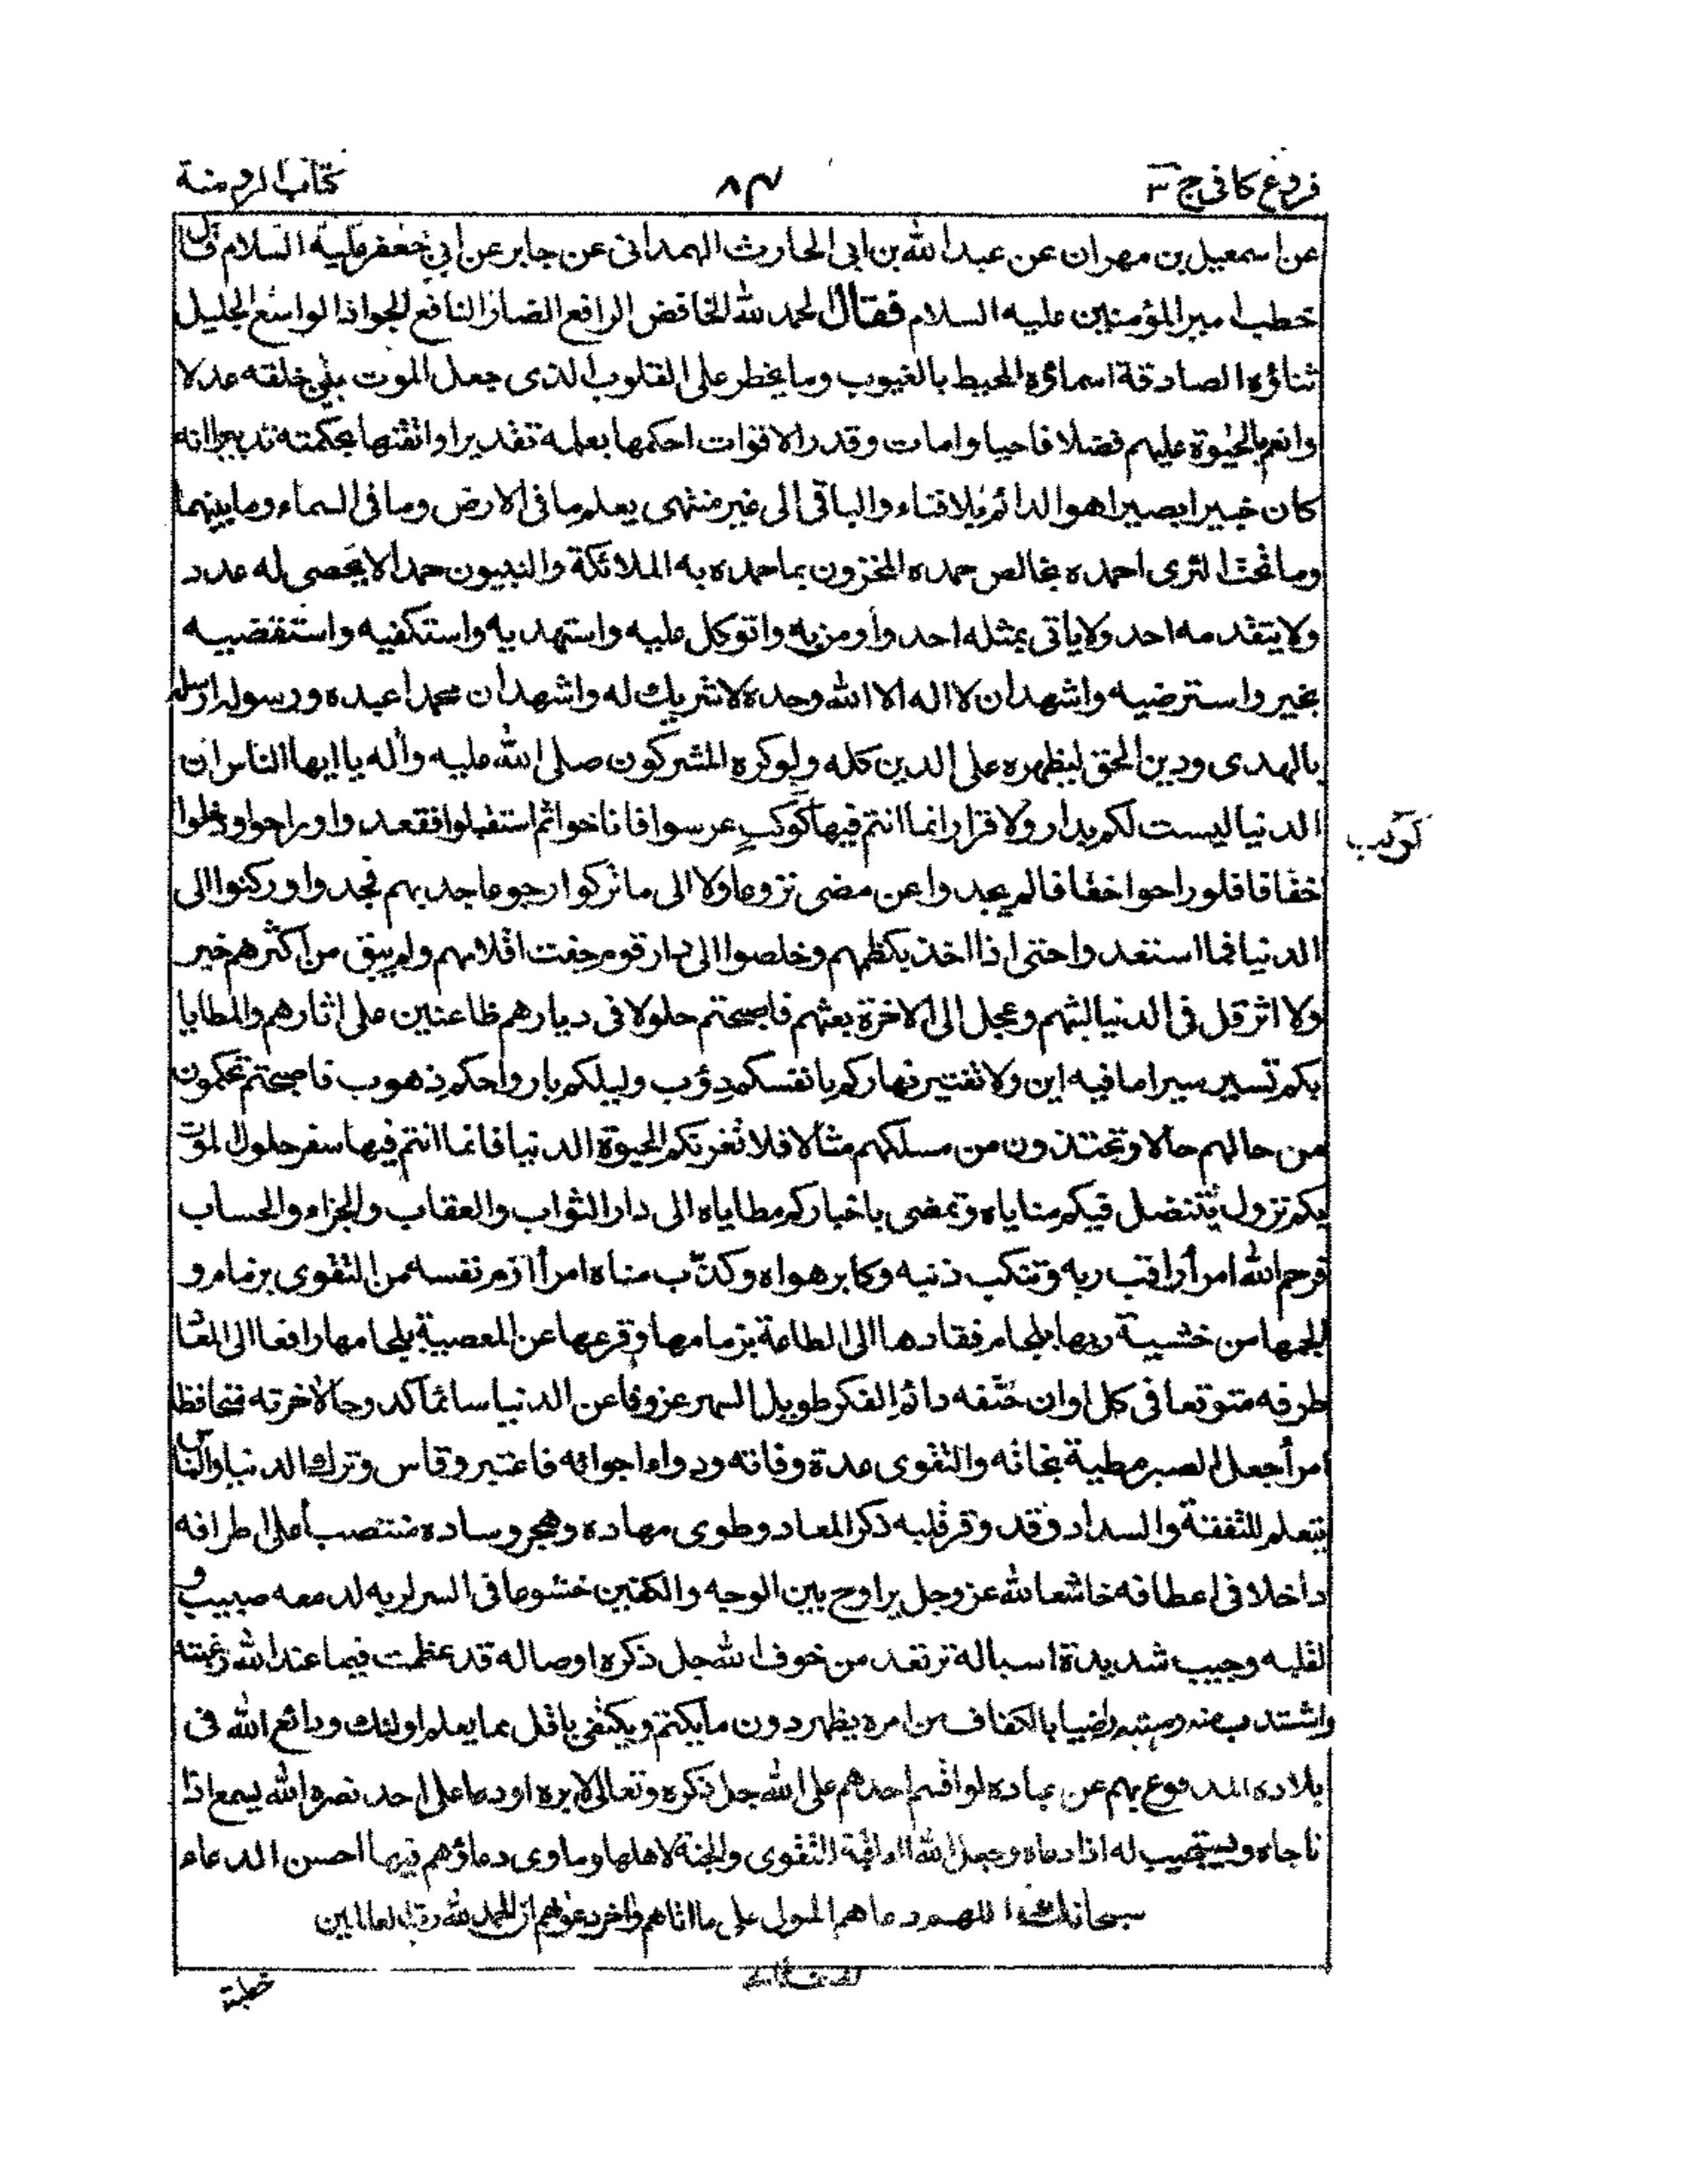 فروع كافى ج ٣ ٨٣ كتاب الروضة
عن اسمعيل بن مهران عن عبدالله بن ابى الحارث الهمدانى عن جابر عن ابى جعفر عليه السلام قال
خطب امير المؤمنين عليه السلام فقال الحمد لله الخافض الرافع الضار النافع الجواد الواسع الجليل
ثناؤه الصادقة اسماؤه المحيط بالغيوب وما يخطر على القلوب الذى جعل الموت بين خلقه عدلا
وانعم بالحيوة عليهم فضلا فاحيا وامات وقدر الاقوات احكمها بعلمه تقديرا واتقنها بحكمته تدبيرا انه
كان خبيرا بصيرا هو الدائم بلا فناء والباقى الى غير منتهى يعلم ما فى الارض وما فى السماء وما بينهما
وما تحت الثرى احمده بخالص حمده المخزون بما حمده به الملائكة والنبيون حمدا لا يحصى له عدد
ولا يتقدمه احد ولا ياتى بمثله احد واومن به واتوكل عليه واستهديه واستكفيه واستقضيه
بخير واسترضيه واشهد ان لا اله الا الله وحده لا شريك له واشهد ان محمدا عبده ورسوله ارسله
بالهدى ودين الحق ليظهره على الدين كله ولو كره المشركون صلى الله عليه وآله يا ايها الناس ان
الدنيا ليست لكم بدار ولا قرار انما انتم فيها كركب عرسوا فاناخوا ثم استقلوا فغدوا وراحوا دخلوا
كركب
خفافا فلو راحوا خفافا لم يجدوا عن مضى نزوعا ولا الى ما تركوا رجوعا جد بهم فجدوا وركنوا الى
الدنيا فما استعدوا حتى اذا اخذ بكظمهم وخلصوا الى دار قوم جفت اقلامهم ولم يبق من اكثرهم خبر
ولا اثر قل فى الدنيا لبثهم وعجل الى الاخرة بعثهم فاصبحتم حلولا فى ديارهم ظاعنين على اثارهم والمطايا
بكم تسير سيرا ما فيه اين ولا تفتير نهاركم بانفسكم دؤب وليلكم بارواحكم ذهوب فاصبحتم تحكون
من حالهم حالا وتحتذون من مسلكهم مثالا فلا تغرنكم الحيوة الدنيا فانما انتم فيها سفر حلول الموت
بكم نزول تتنضل فيكم مناياه وتمضى باخباركم مطاياه الى دار الثواب والعقاب والجزاء والحساب
فرحم الله امرأ راقب ربه وتنكب ذنبه وكابر هواه وكذّب مناه امرأ ازم نفسه من التقوى بزمام و
الجمها من خشية ربها بلجام فقادها الى الطاعة بزمامها وقرعها عن المعصية بلجامها رافعا الى المعاد
طرفه متوقعا فى كل اوان حتفه دائم الفكر طويل السهر عزوفا عن الدنيا سائما كدوحا لاخرته متحافظا
امرأ جعل الصبر مطية نجاته والتقوى عدة وفاته ودواء اجوائه فاعتبر وقاس وترك الدنيا والناس
يتعلم للتفقه والسداد وقد وقر قلبه ذكر المعاد وطوى مهاده وهجر وساده منتصبا على اطرافه
داخلا فى اعطافه خاشعا لله عز وجل يراوح بين الوجه والكفين خشوعا فى السر لربه لدمعه صبيب و
لقلبه وجيب شديدة اسباله ترتعد من خوف الله جل ذكره اوصاله قد عظمت فيما عند الله رغبته
واشتدت منه رهبته راضيا بالكفاف من امره يظهر دون ما يكتم ويكتفى باقل مما يعلم اولئك ودائع الله فى
بلاده المدفوع بهم عن عباده لو اقسم احدهم على الله جل ذكره وتعالى لابره او دعا على احد نصره الله يسمع اذا
ناجاه ويستجيب له اذا دعاه وجعل الله العاقبة للتقوى والجنة لاهلها وماوى دعاؤهم فيها احسن الدعاء
سبحانك اللهم دعاهم المولى على ما اتاهم واخر دعواهم ان الحمد لله رب العالمين
خطبة